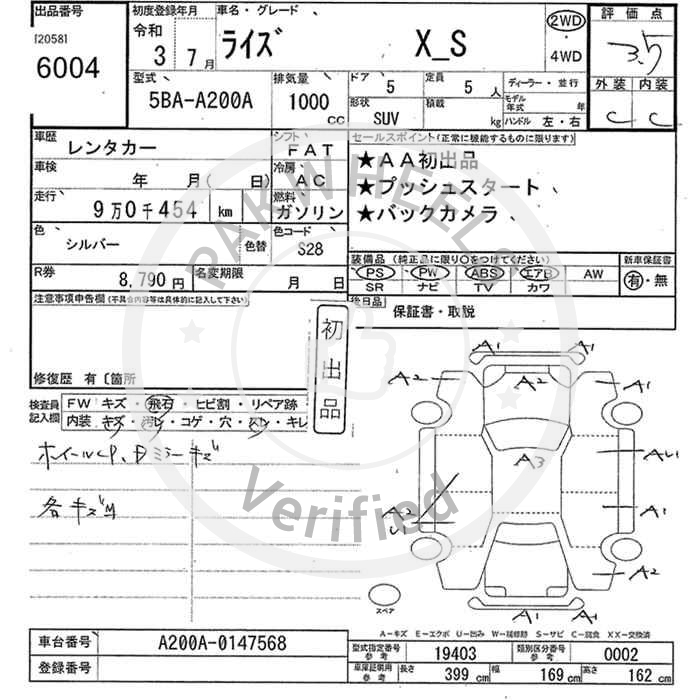 出品番号 初度登録年月 車名・グレード 評価点
[2058]
6004
令和
3 7月
ライズ X_S
2WD
4WD
3.5
型式 排気量 ドア 5 定員 5人 ディーラー・並行
5BA-A200A 1000 cc 形状 SUV 積載 kg
モデル年式 年
ハンドル 左・右
外装 内装
C C
車歴 レンタカー シフト FAT
セールスポイント(正常に機能するものに限ります)
車検 年 月(日) 冷房 AC
★AA初出品
走行 9万0千454 km 燃料 ガソリン
★プッシュスタート
★バックカメラ
色 シルバー 色替 色コード S28
装備品 (純正品に限り○をつけてください) 新車保証書
PS PW ABS エアB AW 有・無
SR ナビ TV カワ
R券 8,790円 名変期限 月 日
後日品 保証書・取説
注意事項申告欄(不具合内容等は具体的に記入して下さい)
初出品
修復歴 有〔箇所
検査員記入欄 FW キズ・飛石・ヒビ割・リペア跡
内装 キズ・汚レ・コゲ・穴・スレ・キレ
ホイールCP、Dミラーキズ
各キズM
A1 A1
A2 A2 A1
A3
AU1
A2 A1
U1
A2
A1 A1
スペア
PAKWHEELS
Verified
A-キズ E-エクボ U-凹み W-補修跡 S-サビ C-腐食 XX-交換済
車台番号 A200A-0147568
登録番号
型式指定番号 参考 19403 類別区分番号 参考 0002
車庫証明用 参考 長さ 399cm 幅 169cm 高さ 162cm